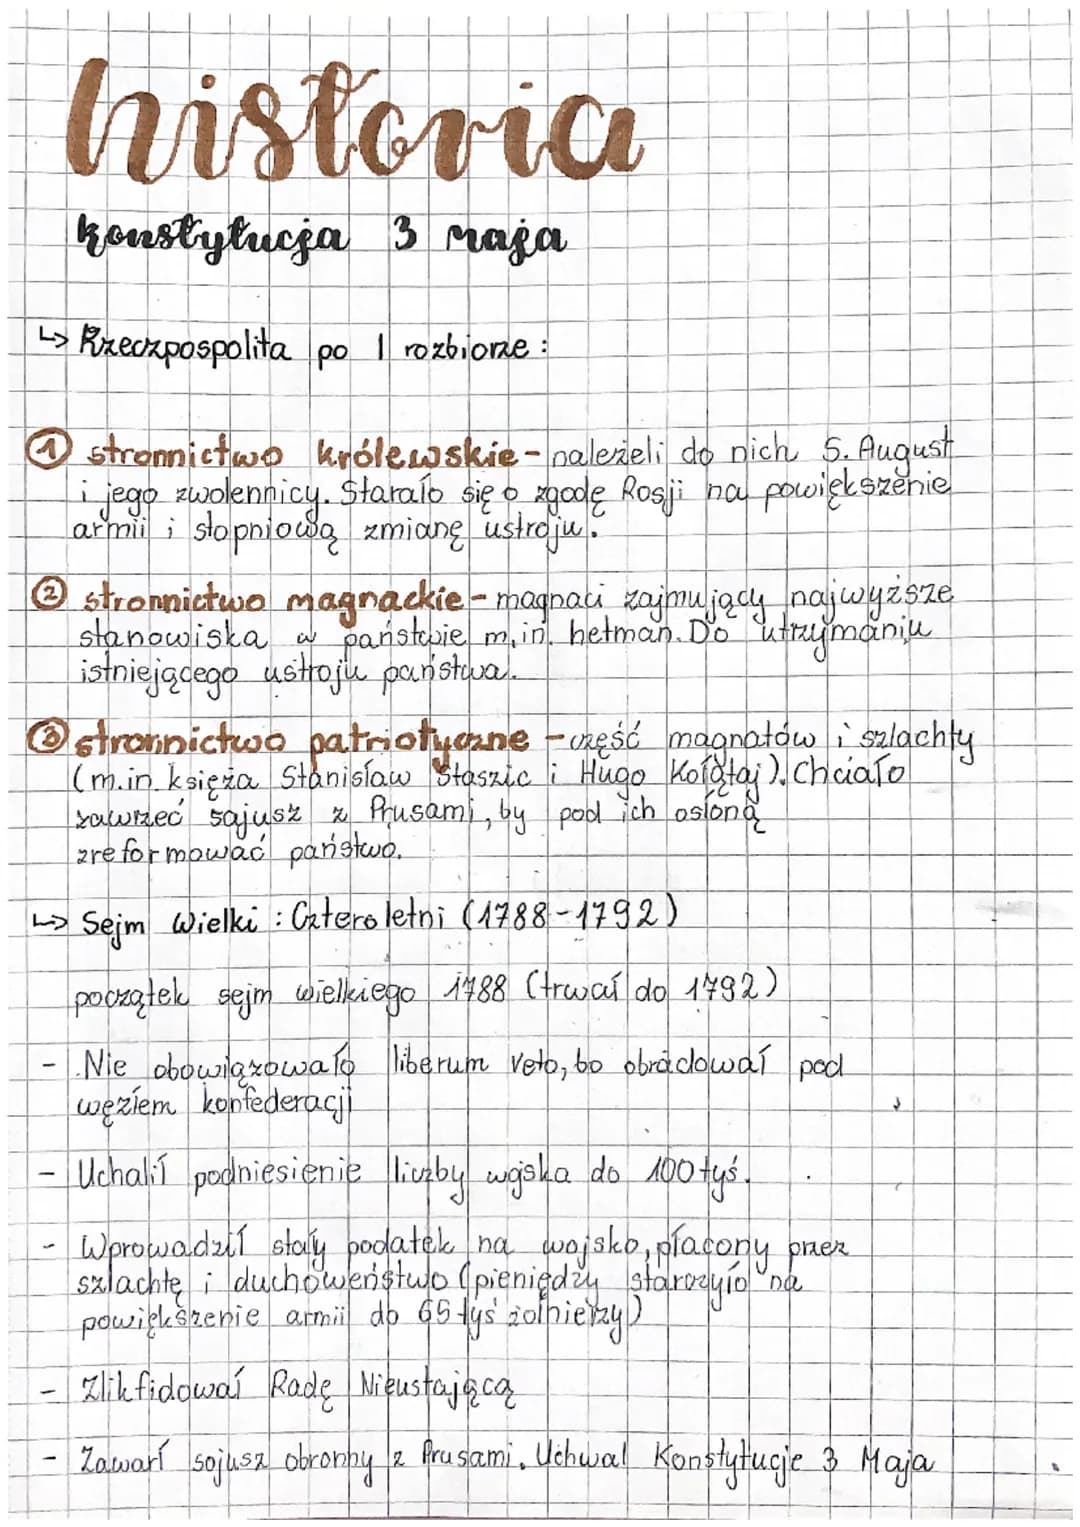 historia
konstytucja 3 maja
↳ Rzeczpospolita po I rozbiorze:
① stronnictwo królewskie - należeli do nich S. August
i jego zwolennicy. Starało się o zgodę Rosji na powiększenie
armii i stopniową zmianę ustroju.
② stronnictwo magnackie - magnaci zajmujący najwyższe
stanowiska w państwie m.in. hetman. Do utrzymaniu
istniejącego ustroju państwa.
③ stronnictwo patriotyczne - część magnatów i szlachty
(m.in. księża Stanisław Staszic i Hugo Kołątaj). Chciało
zawrzeć sajusz z Prusami, by pod ich osłoną
zreformować państwo.
↳ Sejm Wielki : Czteroletni (1788-1792)
początek sejm wielkiego 1788 (trwał do 1792)
- Nie obowiązowało liberum veto, bo obradował pod
węzłem konfederacji
- Uchalił podniesienie liczby wojska do 100 tyś.
- Wprowadził stały podatek na wojsko, płacony przez
szlachtę i duchowieństwo (pieniędzy starczyło na
powiększenie armii do 65 tyś żołnierzy)
- Zlikfidował Radę Nieustającą
- Zawarł sojusz obronny z Prusami. Uchwal Konstytucje 3 Maja